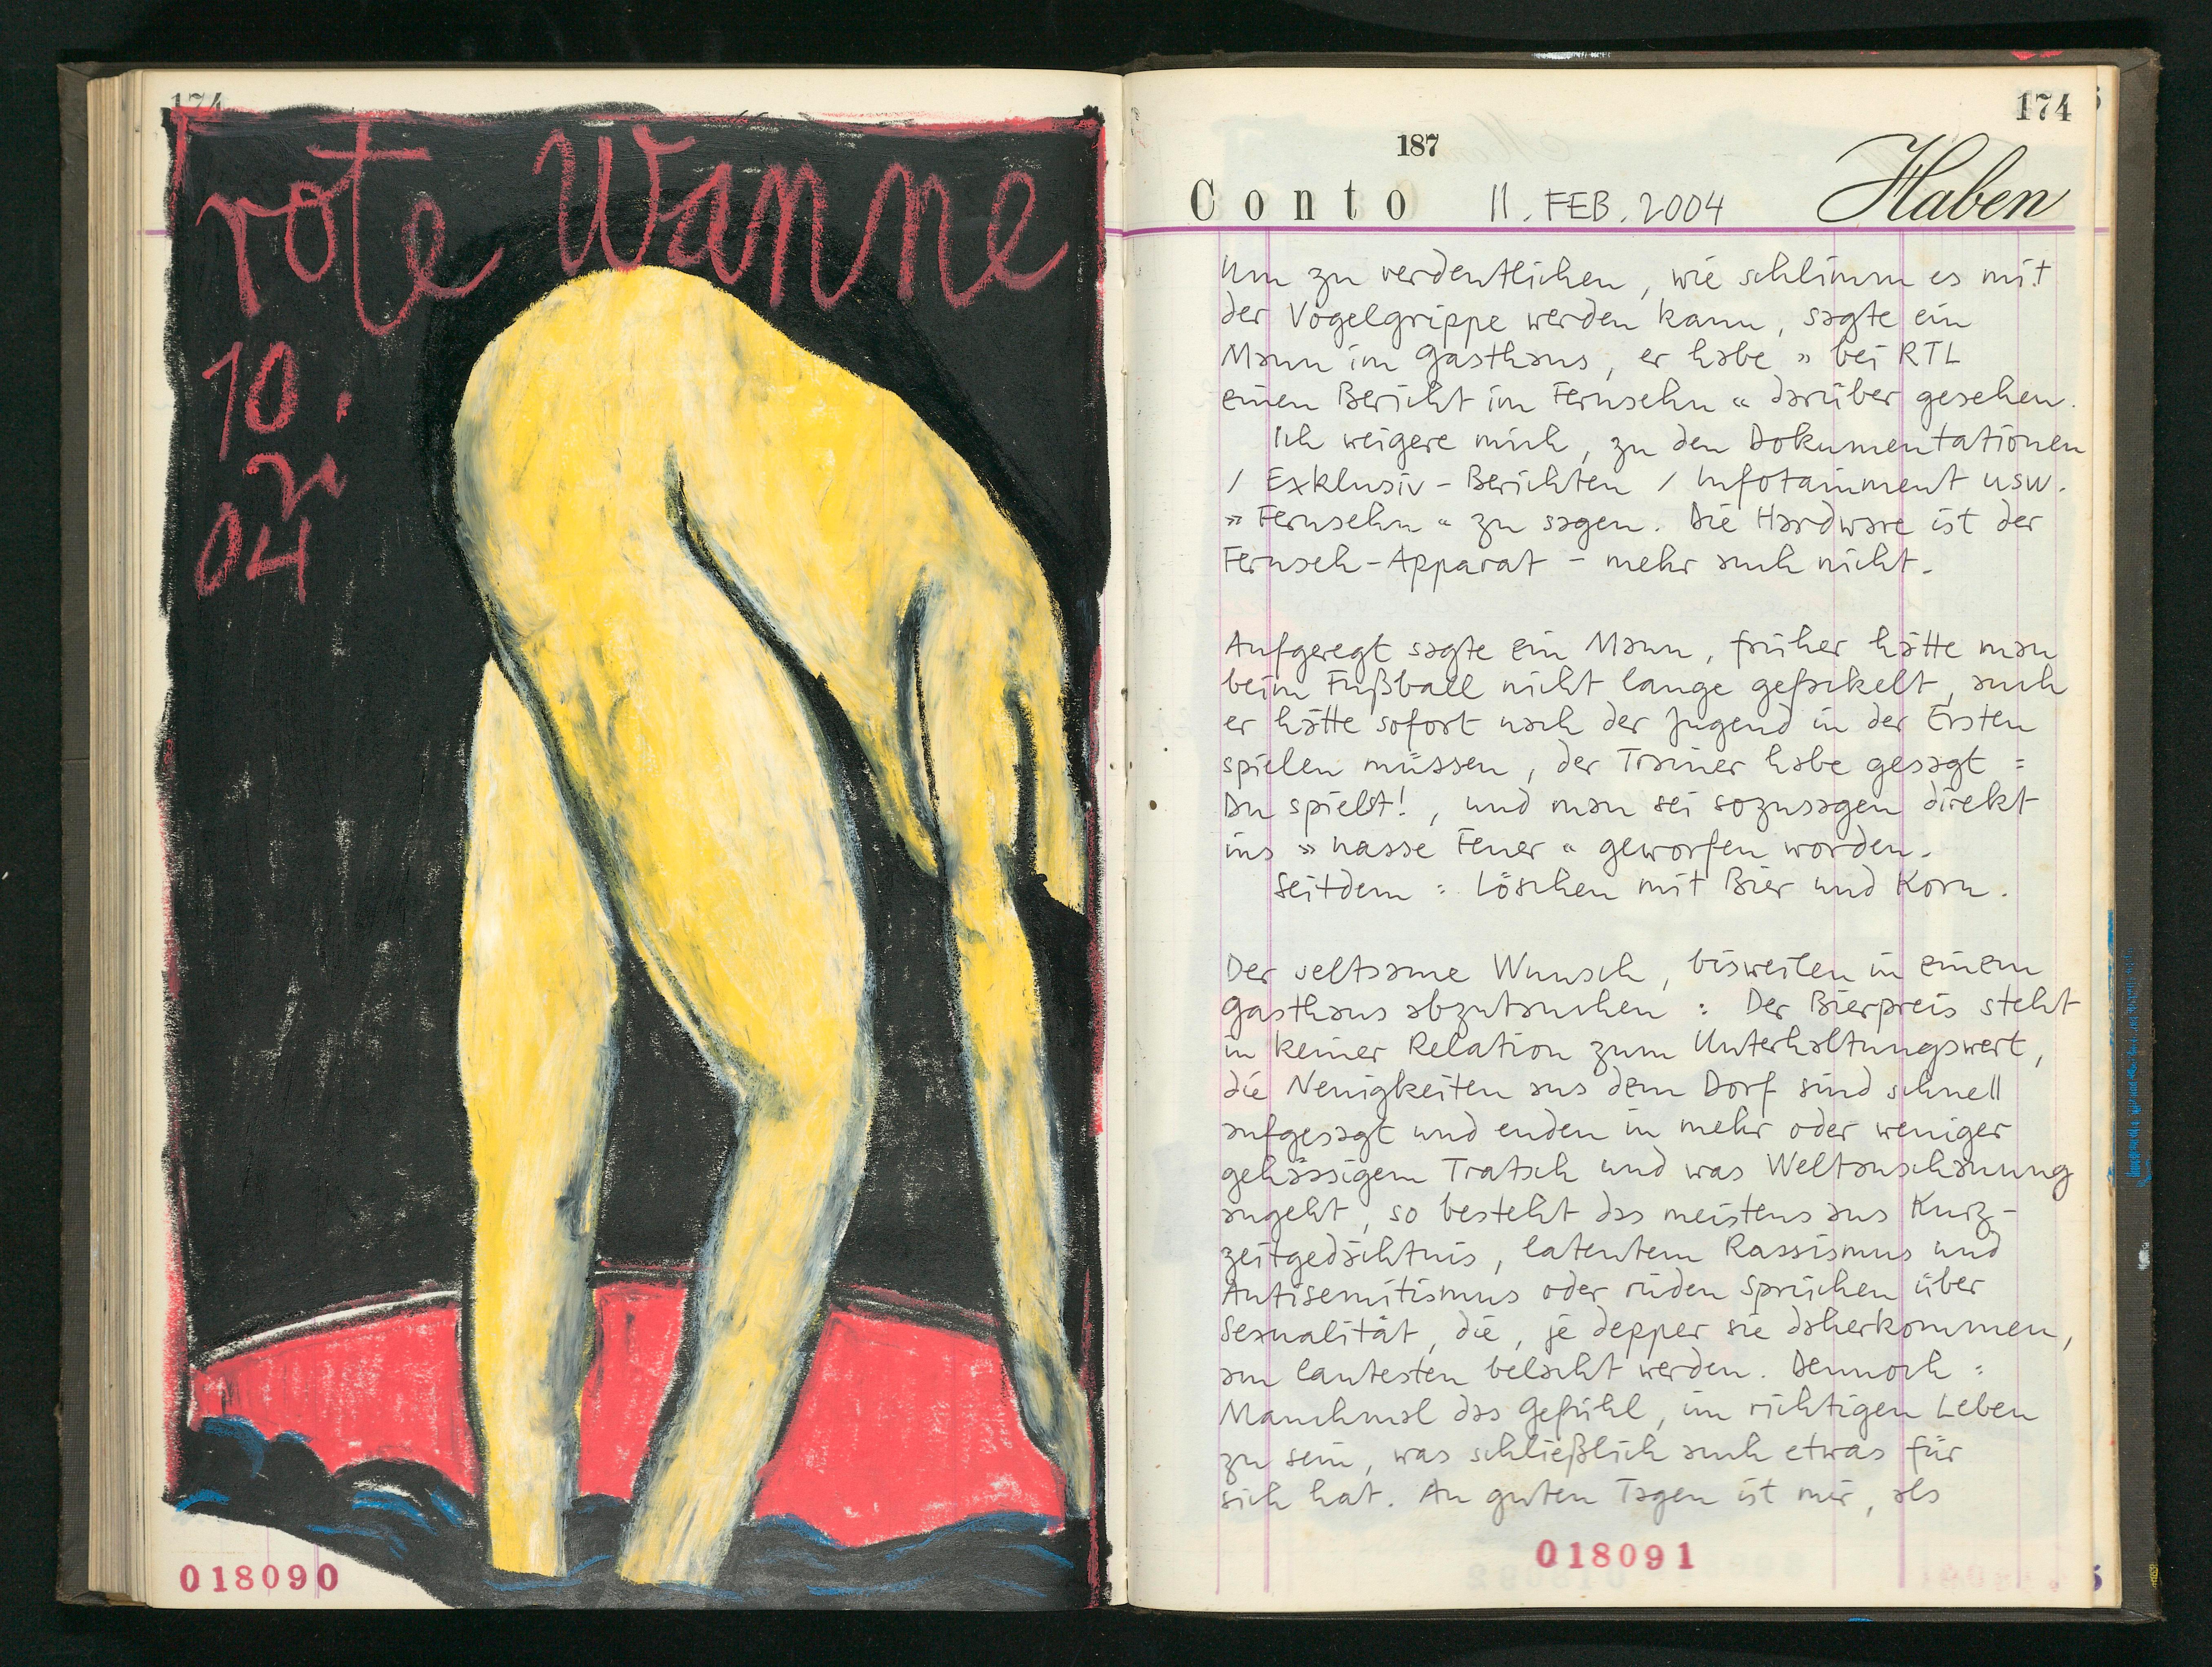 174
rote Wanne
10.
2
04
018090
174
187
Conto 11. FEB. 2004 Haben
Um zu verdeutlichen, wie schlimm es mit
der Vogelgrippe werden kann, sagte ein
Mann im Gasthaus, er habe » bei RTL
einen Bericht im Fernsehn « darüber gesehen.
Ich weigere mich, zu den Dokumentationen
/ Exklusiv-Berichten / Infotainment usw.
» Fernsehn « zu sagen. Die Hardware ist der
Fernseh-Apparat - mehr auch nicht.
Aufgeregt sagte ein Mann, früher hätte man
beim Fußball nicht lange gefackelt, auch
er hätte sofort nach der Jugend in der Ersten
spielen müssen, der Trainer habe gesagt :
Du spielst!, und man sei sozusagen direkt
ins » nasse Feuer « geworfen worden.
Seitdem : Löschen mit Bier und Korn.
Der seltsame Wunsch, bisweilen in einem
Gasthaus abzutauchen : Der Bierpreis steht
in keiner Relation zum Unterhaltungswert,
die Neuigkeiten aus dem Dorf sind schnell
aufgesagt und enden in mehr oder weniger
gehässigem Tratsch und was Weltanschauung
angeht, so besteht das meistens aus Kurz-
zeitgedächtnis, latentem Rassismus und
Antisemitismus oder rüden Sprüchen über
Sexualität, die, je depper sie daherkommen,
am lautesten belacht werden. Dennoch :
Manchmal das Gefühl, im richtigen Leben
zu sein, was schließlich auch etwas für
sich hat. An guten Tagen ist mir, als
018091